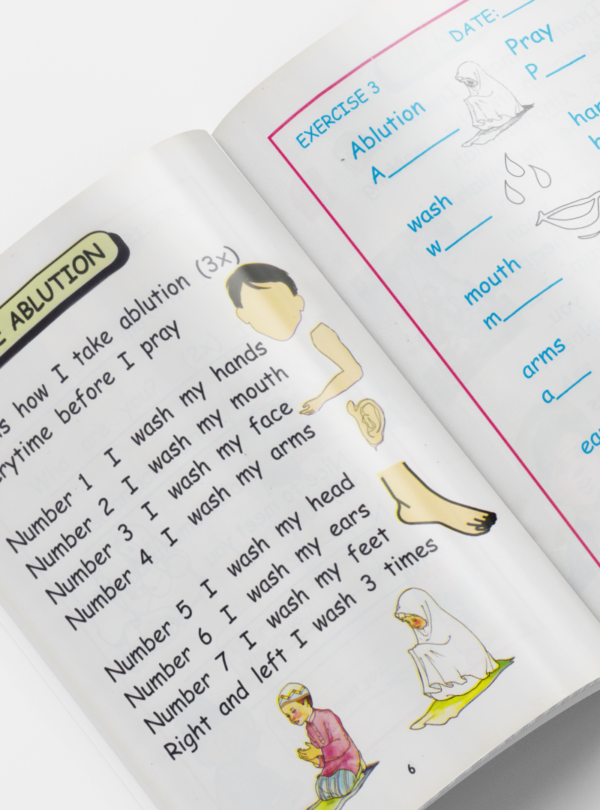 E ABLUTION
s how I take ablution (3x)
rytime before I pray
Number 1 I wash my hands
Number 2 I wash my mouth
Number 3 I wash my face
Number 4 I wash my arms
Number 5 I wash my head
Number 6 I wash my ears
Number 7 I wash my feet
Right and left I wash 3 times
6
DATE:
EXERCISE 3
Ablution
A
Pray
P
wash
w
har
h
mouth
m
arms
a
ea